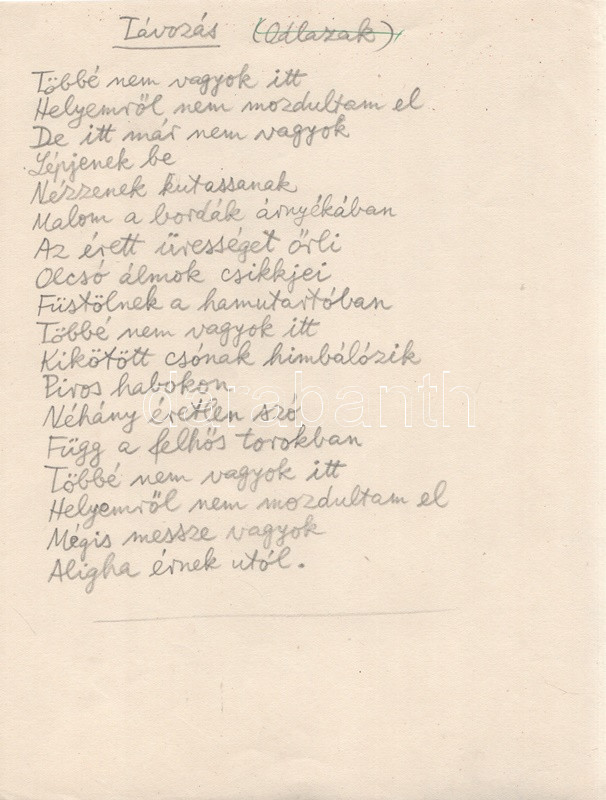 Távozás (Odlazak)
Többé nem vagyok itt
Helyemről nem mozdultam el
De itt már nem vagyok
Lépjenek be
Nézzenek kutassanak
Malom a bordák árnyékában
Az érett ürességet őrli
Olcsó álmok csikkjei
Füstölnek a hamutartóban
Többé nem vagyok itt
Kikötött csónak himbálózik
Piros habokon
Néhány éretlen szó
Függ a felhős torokban
Többé nem vagyok itt
Helyemről nem mozdultam el
Mégis messze vagyok
Aligha érnek utól.
darabanth